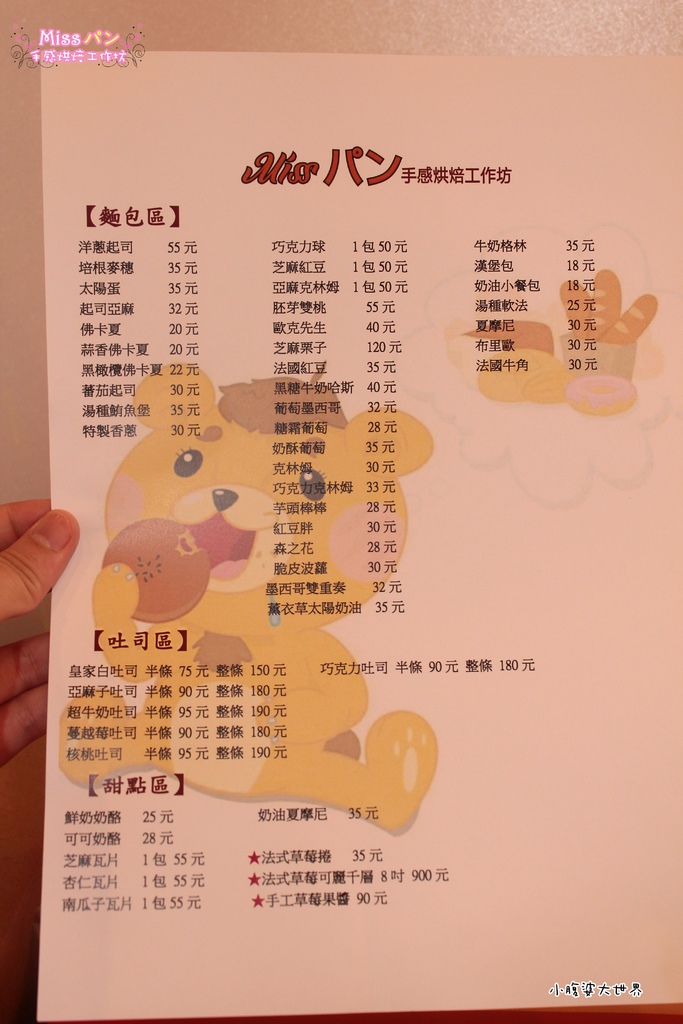 Miss パン
手感烘焙工作坊
Miss パン 手感烘焙工作坊
【麵包區】
洋蔥起司 55元
培根麥穗 35元
太陽蛋 35元
起司亞麻 32元
佛卡夏 20元
蒜香佛卡夏 20元
黑橄欖佛卡夏 22元
蕃茄起司 30元
湯種鮪魚堡 35元
特製香蔥 30元
巧克力球 1包50元
芝麻紅豆 1包50元
亞麻克林姆 1包50元
胚芽雙桃 55元
歐克先生 40元
芝麻栗子 120元
法國紅豆 35元
黑糖牛奶哈斯 40元
葡萄墨西哥 32元
糖霜葡萄 28元
奶酥葡萄 35元
克林姆 30元
巧克力克林姆 33元
芋頭棒棒 28元
紅豆胖 30元
森之花 28元
脆皮波蘿 30元
墨西哥雙重奏 32元
薰衣草太陽奶油 35元
牛奶格林 35元
漢堡包 18元
奶油小餐包 18元
湯種軟法 25元
夏摩尼 30元
布里歐 30元
法國牛角 30元
【吐司區】
皇家白吐司 半條 75元 整條 150元 巧克力吐司 半條 90元 整條 180元
亞麻子吐司 半條 90元 整條 180元
超牛奶吐司 半條 95元 整條 190元
蔓越莓吐司 半條 90元 整條 180元
核桃吐司 半條 95元 整條 190元
【甜點區】
鮮奶奶酪 25元
可可奶酪 28元
芝麻瓦片 1包 55元
杏仁瓦片 1包 55元
南瓜子瓦片 1包55元
奶油夏摩尼 35元
★法式草莓捲 35元
★法式草莓可麗千層 8吋 900元
★手工草莓果醬 90元
小腹婆大世界